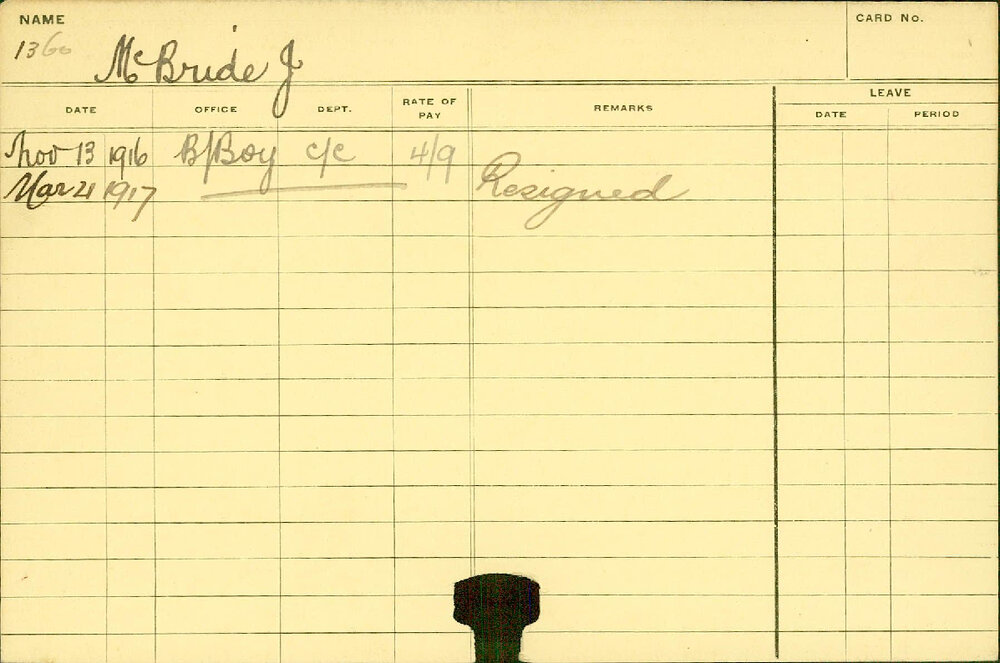 NAME
CARD No.
1360
McBride J
DATE OFFICE DEPT. RATE OF PAY REMARKS LEAVE
DATE PERIOD
Nov 13 1916 B/Boy c/c 4/9
Mar 21 1917 Resigned